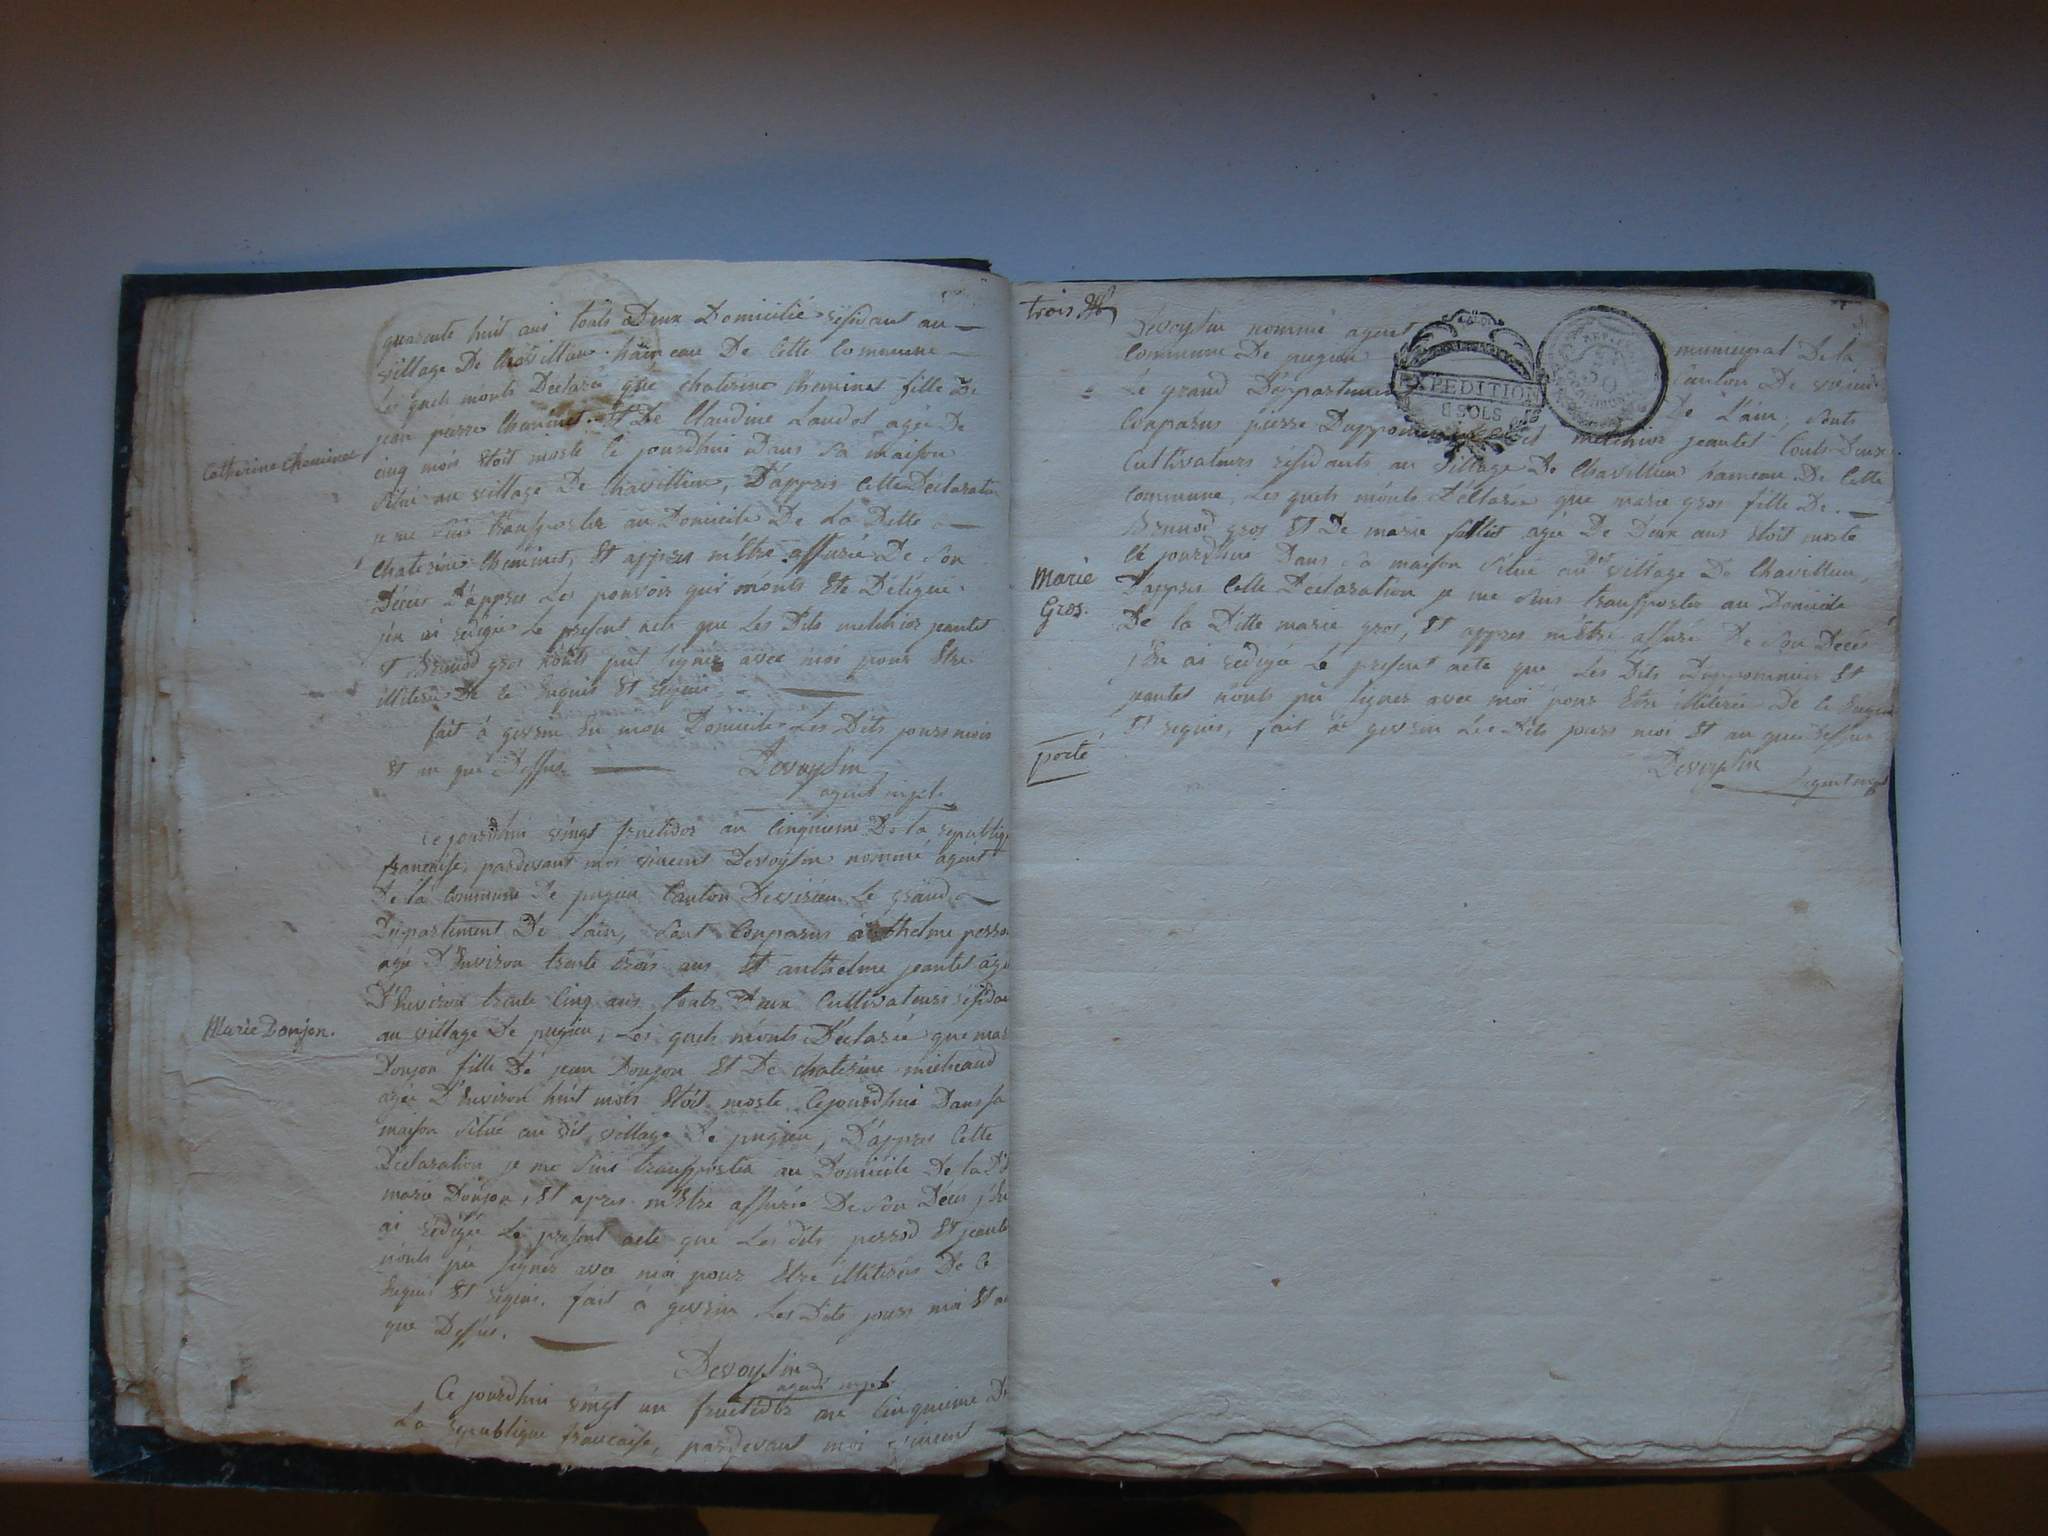 quarante huit ans touts Deux Domicilié résidant au
village De Chavillieu hameau De Cette Commune
Les quels m'onts Déclaré que chaterine Cheminet fille De
jean pierre Cheminet Et De Claudine Laudet agée De
Catherine Cheminet
cinq mois Etoit morte ce jourdhui Dans sa maison
situé au village De Chavillieu, D'appres Cette Declaration
je me suis transporter au Domicile De La Ditte
Chaterine Cheminet, Et appres m'Etre assurée De son
Décès D'appres Les pouvoir qui m'onts Eté Délégué
j'en ai redigée Le present acte que Les Dits melchior jeantet
Et Benoid gros n'onts put signer avec moi pour Etre
illiteré De ce Enquis Et requis
fait à gevrin En mon Domicile Les Dits jours mois
Et an que Dessus
Devoylin
agent mpl
Ce jourdhui vingt fructidor an Cinquieme De la republiq
francaise, pardevant moi vincent Devoylin nommé agent
De la Commune De pugieu Canton De virieu Le grand
Departement De Lain, sont Comparus anthelme perro
agé D'Environ trente trois ans Et anthelme jeantet agé
D'Environ trente Cinq ans touts Deux Cultivateurs résidan
Marie Donjon.
au village De pugieu, Les quels m'onts Déclarée que mar
Donjon fille De jean Donjon Et De chaterine micheaud
agée D'Environ huit mois Etoit morte Cejourdhui Dans sa
maison situé au dit village De pugieu, D'appres Cette
Declaration je me suis transporter au Domicile De la D
marie Donjon, Et apres m'Etre assurée De son Déces j'En
ai rédigée Le présent acte que Les dits perrod Et jeante
n'onts pu signer avec moi pour Etre illitérés De Ce
Enquis Et requis. fait à gevrin Les Dits jours moi Et a
que Dessus.
Devoylin
agent mpl
Ce jourdhui vingt un fructidor an Cinquieme De
La republique francaise, pardevant moi vincent
trois
Devoylin nommé agent municipal De la
Commune De pugieu Canton De virieu
Le grand Departement De L'ain, sonts
EXPEDITION
8 SOLS
50
Comparus pierre Dupponnois et melchior jeantet touts Deux
Cultivateurs résidants au village De Chavillieu hameau De Cette
Commune, Les quels m'onts Déclarée que marie gros fille De
Bennod gros Et De marie agée De Deux ans Etoit morte
Ce jourdhui Dans sa maison située au dit village De Chavillieu,
Marie
Gros.
D'appres Cette Declaration je me suis transporter au Domicile
De la Ditte marie gros, Et appres m'Etre assuré De son Décés
j'En ai redigée Le present acte que Les Dits Dupponnois Et
jeantet n'onts pu signer avec moi pour Etre illitérée De Ce Enquis
Et requis, fait à gevrin Les Dits jours moi Et an que Dessus
porté
Devoylin
agent mpl